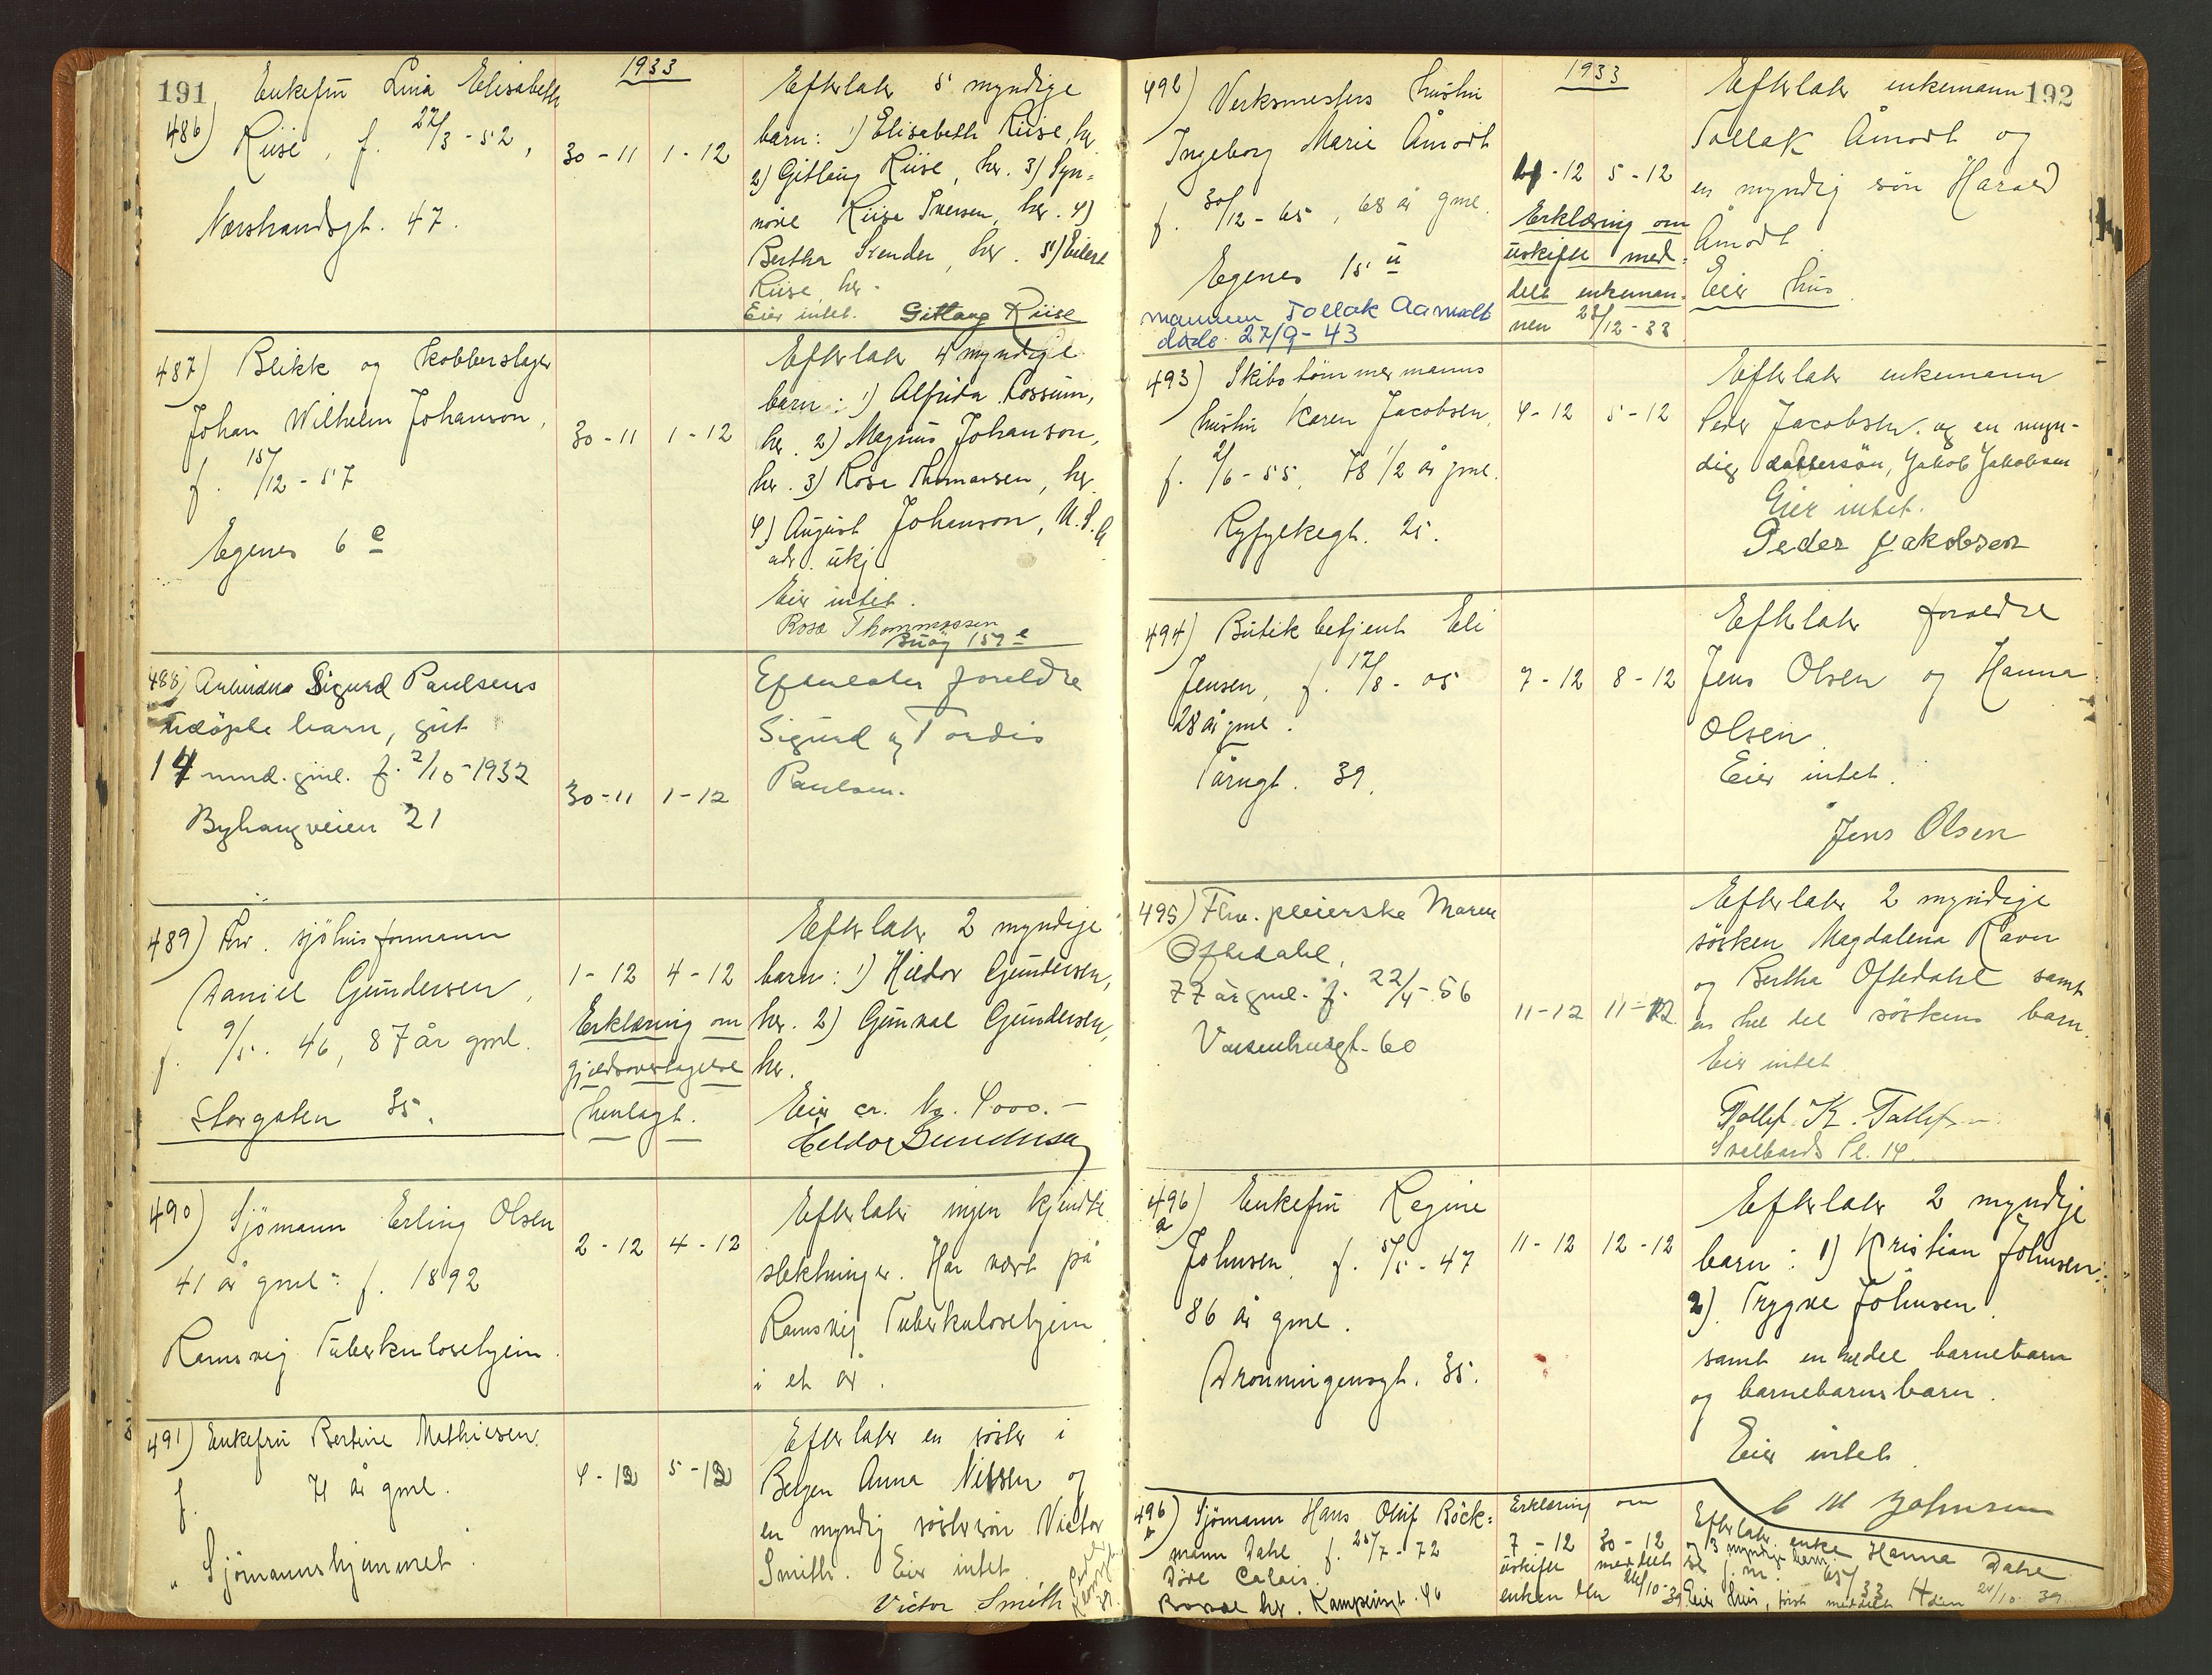 191
1933
486) Enkefru Lina Elisabeth
Riise, f. 22/3-52,
Nærstrandsgt. 47.
30-11 1-12
Efterlater 5 myndige
barn: 1) Elisabeth Riise, her
2) Gitlaug Riise, her. 3) Syn-
növe Riise Iversen, her. 4)
Bertha Svendsen, her. 5) Eilert
Riise, her.
Eier intet. Gitlaug Riise
487) Blikk og Kobberslager
Johan Wilhelm Johanson,
f. 15/12-57
Egenes 6 e
30-11 1-12
Efterlater 4 myndige
barn: 1) Alfrida Rossum,
her. 2) Magnus Johanson,
her. 3) Rosa Thomassen, her
4) August Johanson, U.S.A
adr. ukj
Eier intet.
Rosa Thommassen
Buöy 159 e
488) Arbeider Sigurd Paulsens
udöpte barn, gut
14 mnd. gml. f. 2/10-1932
Byhaugveien 21
30-11 1-12
Efterlater foreldre
Sigurd og Tordis
Paulsen.
489) Fhv. sjöhusformann
Daniel Gundersen,
f. 9/5. 46, 87 år gml.
Storgaten 35.
1-12 4-12
Erklæring om
gjeldsovertagelse
henlagt.
Efterlater 2 myndige
barn: 1) Hildor Gundersen,
her. 2) Gunval Gundersen,
her.
Eier ca. kr. 4000.-
Heldor Gundersen
490) Sjömann Erling Olsen
41 år gml. f. 1892
Ramsvig Tuberkulosehjem.
2-12 4-12
Efterlater ingen kjendte
slektninger. Har vært på
Ramsvig Tuberkulosehjem
i et år.
491) Enkefru Bertine Mathiesen.
f. 71 år gml.
" Sjömannshjemmet.
4-12 5-12
Efterlater en söster i
Bergen Anna Nilssen og
en myndig söstersön Victor
Smith. Eier intet.
Victor Smith
192
1933
492) Verksmesters hustru
Ingeborg Marie Åmodt
f. 30/12-65, 68 år gml.
Egenes 15 u
mannen Tollak Aamodt
døde 27/9-43
4-12 5-12
Erklæring om
uskifte med-
delt enkeman-
nen 23/12-33
Efterlater enkemann
Tollak Åmodt og
en myndig sön Harald
Åmodt.
Eier hus.
493) Skibstömmermanns
hustru Karen Jacobsen,
f. 2/6-55, 78 1/2 år gml.
Ryfylkegt. 25.
4-12 5-12
Efterlater enkemann
Peder Jacobsen. og en myn-
dig dattersön, Jakob Jakobsen
Eier intet.
Peder Jakobsen
494) Butikbetjent Eli
Jensen, f. 12/8-05
28 år gml.
Tårngt. 39.
7-12 8-12
Efterlater foreldre
Jens Olsen og Hanna
Olsen.
Eier intet.
Jens Olsen
495) Fhv. pleierske Maren
Oftedahl,
77 år gml. f. 22/4-56
Vaisenhusgt. 60
11-12 11-12
Efterlater 2 myndige
sösken Magdalena Ravn
og Bertha Oftedahl samt
en hel del söskens barn.
Eier intet
Tollef K. Tollefsen
Svalbards Pl. 14.
496) Enkefru Regine
a
Johnsen, f. 5/5-47
86 år gml.
Dronningensgt. 35.
11-12 12-12
Efterlater 2 myndige
barn: 1) Kristian Johnsen.
2) Trygve Johnsen.
samt en hel del barnebarn
og barnebarns barn.
Eier intet.
C M Johnsen
496) Sjömann Hans Oluf Böck-
b
mann Dahl f. 25/7-72
Döde Calais.
her. Kampengt. 46
Erklæring om
7-12 30-12
uskifte meddelt
enken den 24/10-39
Efterlater enke Hanna Dahl
og 3 myndige barn.
Eier hus, först meddelt 24/10 39